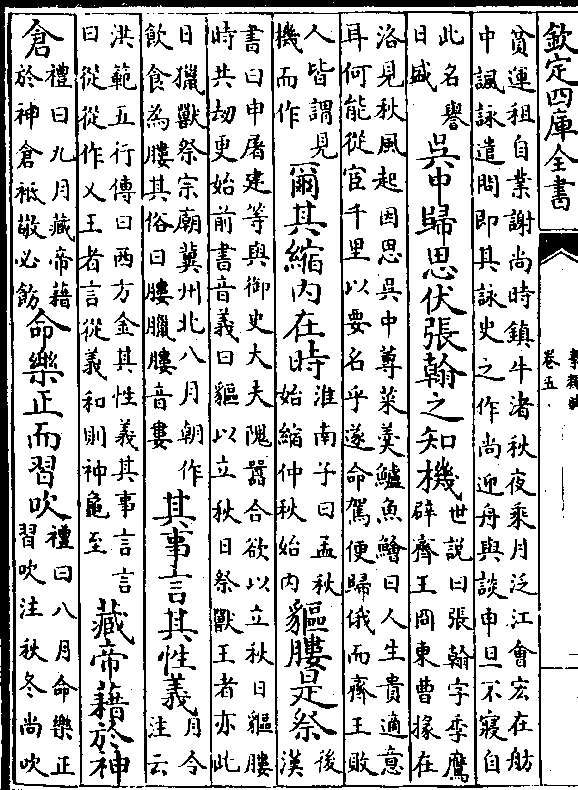 欽定四庫全書
事類賦
卷五
賞運租自業謝尚時鎮牛渚秋夜乘月泛江會宏在舫
中諷詠遣問即其詠史之作尚迎舟與談申旦不寢自
此名譽
日盛
吳中歸思伏張翰之知機
世說曰張翰字季鷹
辟齊王冏東曹掾在
洛見秋風起因思吳中蓴菜羹鱸魚鱠曰人生貴適意
耳何能從宦千里以要名乎遂命駕便歸俄而齊王敗
人皆謂見
機而作
爾其縮內在時
淮南子曰孟秋
始縮仲秋始內
貙膢是祭
後
漢
書曰申屠建等與御史大夫隗囂合欲以立秋日貙膢
時共劫更始前書音義曰貙以立秋日祭獸王者亦此
日獵獸祭宗廟冀州北八月朝作
飲食為膢其俗曰膢臘膢音婁
其事言其性義
月令
注云
洪範五行傳曰西方金其性義其事言言
曰從從作乂王者言從義和則神龜至
藏帝藉於神
倉
禮曰九月藏帝藉
於神倉祗敬必飭
命樂正而習吹
禮曰八月命樂正
習吹注秋冬尚吹